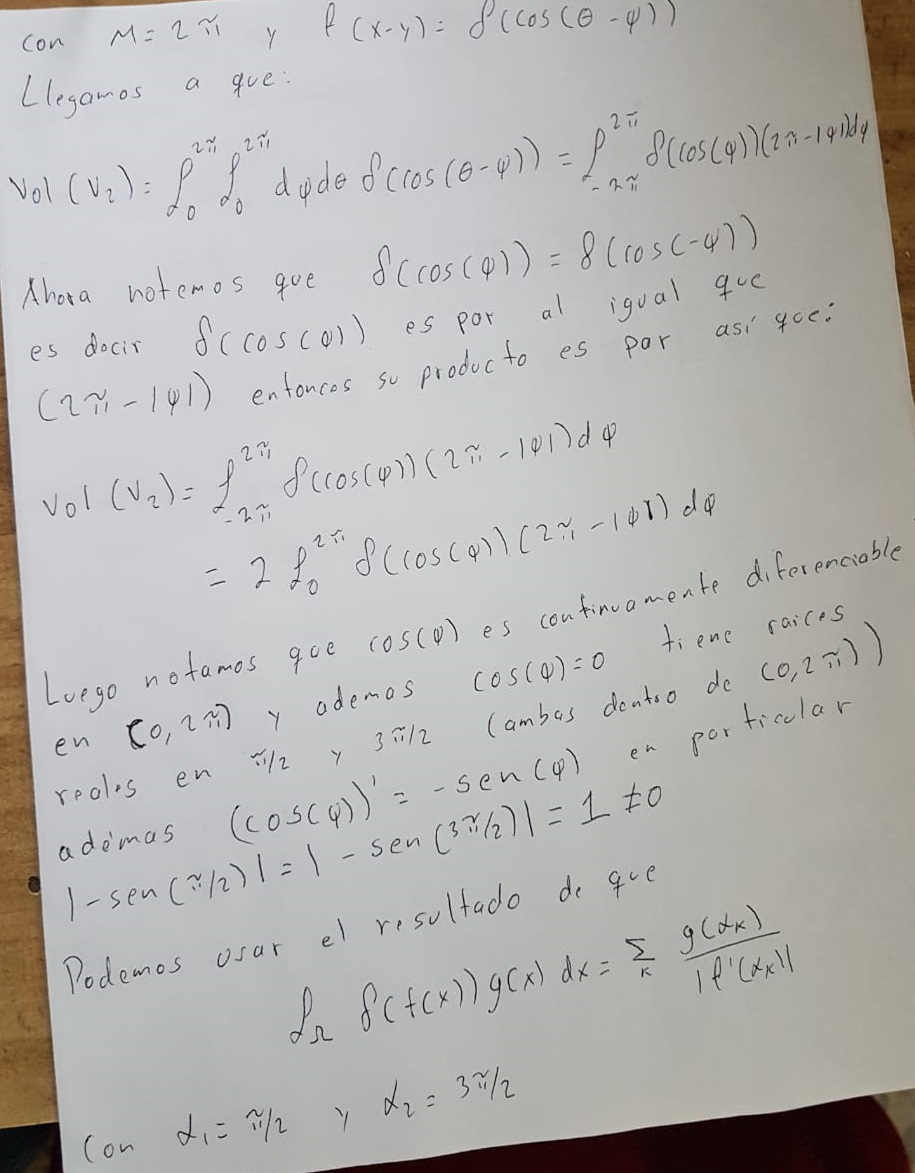 con M = 2π y f(x-y) = δ(cos(θ-φ))
Llegamos a que:
Vol(V₂) = ∫₀^2π ∫₀^2π dφdθ δ(cos(θ-φ)) = ∫_-2π^2π δ(cos(φ))(2π-|φ|)dφ
Ahora notemos que δ(cos(φ)) = δ(cos(-φ))
es decir δ(cos(φ)) es par al igual que
(2π-|φ|) entonces su producto es par así que:
Vol(V₂) = ∫_-2π^2π δ(cos(φ))(2π-|φ|)dφ
= 2 ∫₀^2π δ(cos(φ))(2π-|φ|)dφ
Luego notamos que cos(φ) es continuamente diferenciable
en [0,2π) y ademas cos(φ)=0 tiene raices
reales en π/2 y 3π/2 (ambas dentro de (0,2π))
ademas (cos(φ))' = -sen(φ) en particular
|-sen(π/2)| = |-sen(3π/2)| = 1 ≠ 0
Podemos usar el resultado de que
∫_Ω δ(f(x))g(x) dx = Σ_k g(α_k)/|f'(α_k)|
Con α₁ = π/2 y α₂ = 3π/2